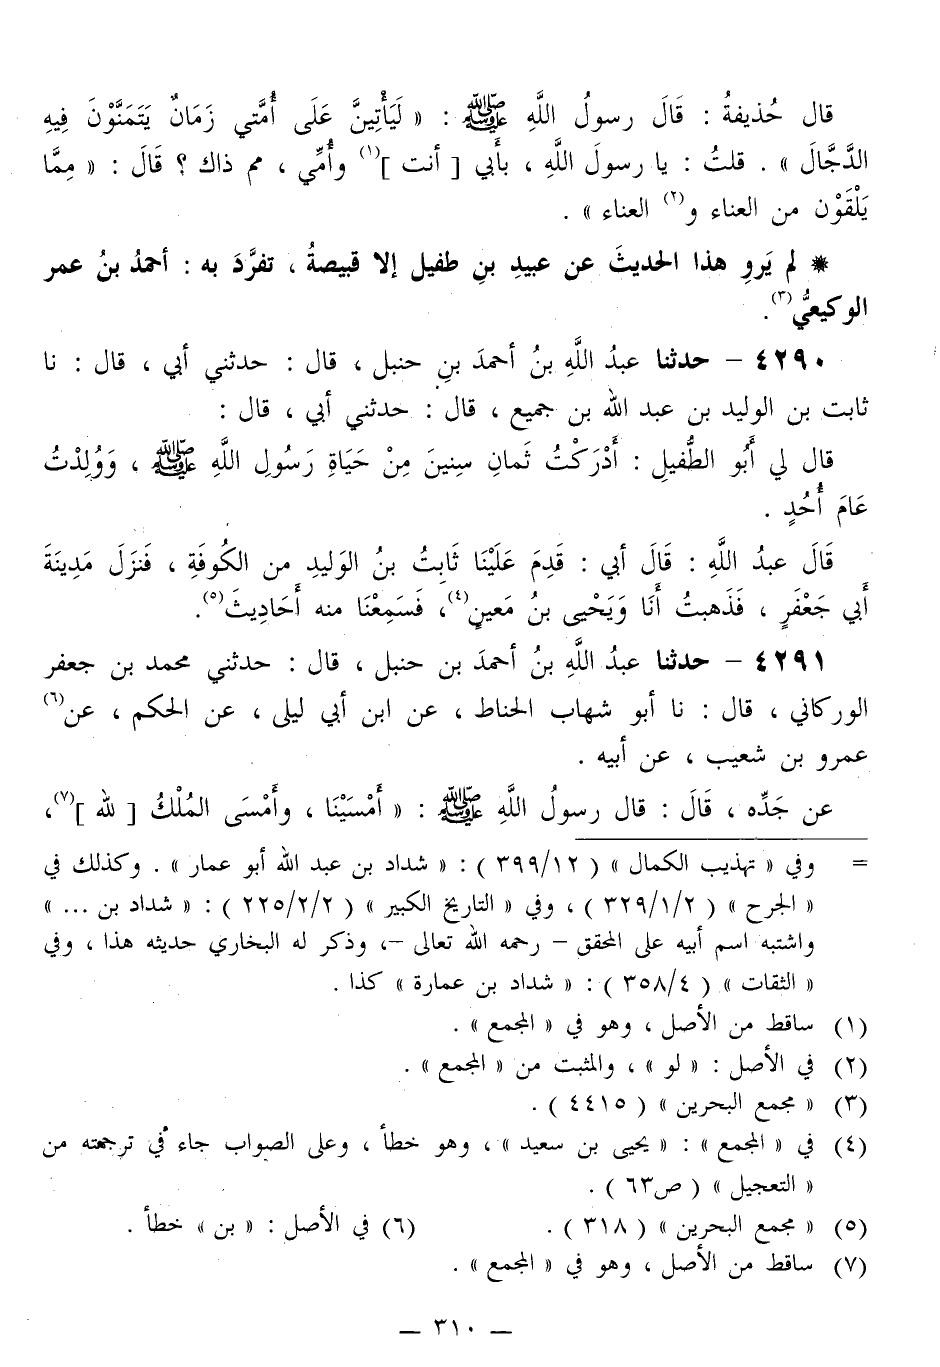 قال حُذيفةُ : قَالَ رسولُ اللَّهِ ﷺ : « لَيَأْتِيَنَّ عَلَى أُمَّتي زَمَانٌ يَتَمَنَّوْنَ فِيهِ
الدَّجَّالَ » . قلتُ : يا رسولَ اللَّهِ ، بأَبي [ أنت ](١) وأُمِّي ، مم ذاك ؟ قَالَ : « مِمَّا
يَلْقَوْن من العناء و(٢) العناء » .
* لم يَروِ هذا الحديثَ عن عبيدِ بنِ طفيل إلا قبيصةُ ، تفرَّدَ به : أحمدُ بنُ عمر
الوكيعيُّ(٣).
٤٢٩٠ – حدثنا عبدُ اللَّهِ بنُ أحمدَ بنِ حنبل ، قال : حدثني أبي ، قال : نا
ثابت بن الوليد بن عبد الله بن جميع ، قال : حدثني أبي ، قال :
قال لي أَبُو الطُّفيلِ : أَدْرَكْتُ ثَمانِ سِنِينَ مِنْ حَيَاةِ رَسُولِ اللَّهِ ﷺ ، وَوُلِدْتُ
عَامَ أُحُدٍ .
قَالَ عبدُ اللَّهِ : قَالَ أبي : قَدِمَ عَلَيْنَا ثَابِتُ بنُ الوَليدِ من الكُوفَةِ ، فَنزَلَ مَدِينَةَ
أَبي جَعْفَرٍ ، فَذَهبتُ أَنَا وَيَحْيى بنُ مَعينٍ(٤)، فَسَمِعْنَا منه أَحَادِيثَ(٥).
٤٢٩١ – حدثنا عبدُ اللَّهِ بنُ أحمدَ بن حنبل ، قال : حدثني محمد بن جعفر
الوركاني ، قال : نا أبو شهاب الحناط ، عن ابن أبي ليلى ، عن الحكم ، عن(٦)
عمرو بن شعيب ، عن أبيه .
عن جَدِّه ، قَالَ : قال رسولُ اللَّهِ ﷺ : « أَمْسَيْنَا ، وأَمْسَى المُلْكُ [ لله ](٧)،
= وفي « تهذيب الكمال » ( ٣٩٩/١٢ ) : « شداد بن عبد الله أبو عمار » . وكذلك في
« الجرح » ( ٣٢٩/١/٢ ) ، وفي « التاريخ الكبير » ( ٢٢٥/٢/٢ ) : « شداد بن ... »
واشتبه اسم أبيه على المحقق – رحمه الله تعالى –، وذكر له البخاري حديثه هذا ، وفي
« الثقات » ( ٣٥٨/٤ ) : « شداد بن عمارة » كذا .
(١) ساقط من الأصل ، وهو في « المجمع » .
(٢) في الأصل : « لو » ، والمثبت من « المجمع » .
(٣) « مجمع البحرين » ( ٤٤١٥ ) .
(٤) في « المجمع » : « يحيى بن سعيد » ، وهو خطأ ، وعلى الصواب جاء في ترجمته من
« التعجيل » ( ص٦٣ ) .
(٥) « مجمع البحرين » ( ٣١٨ ) . (٦) في الأصل : « بن » خطأ .
(٧) ساقط من الأصل ، وهو في « المجمع » .
— ٣١٠ —